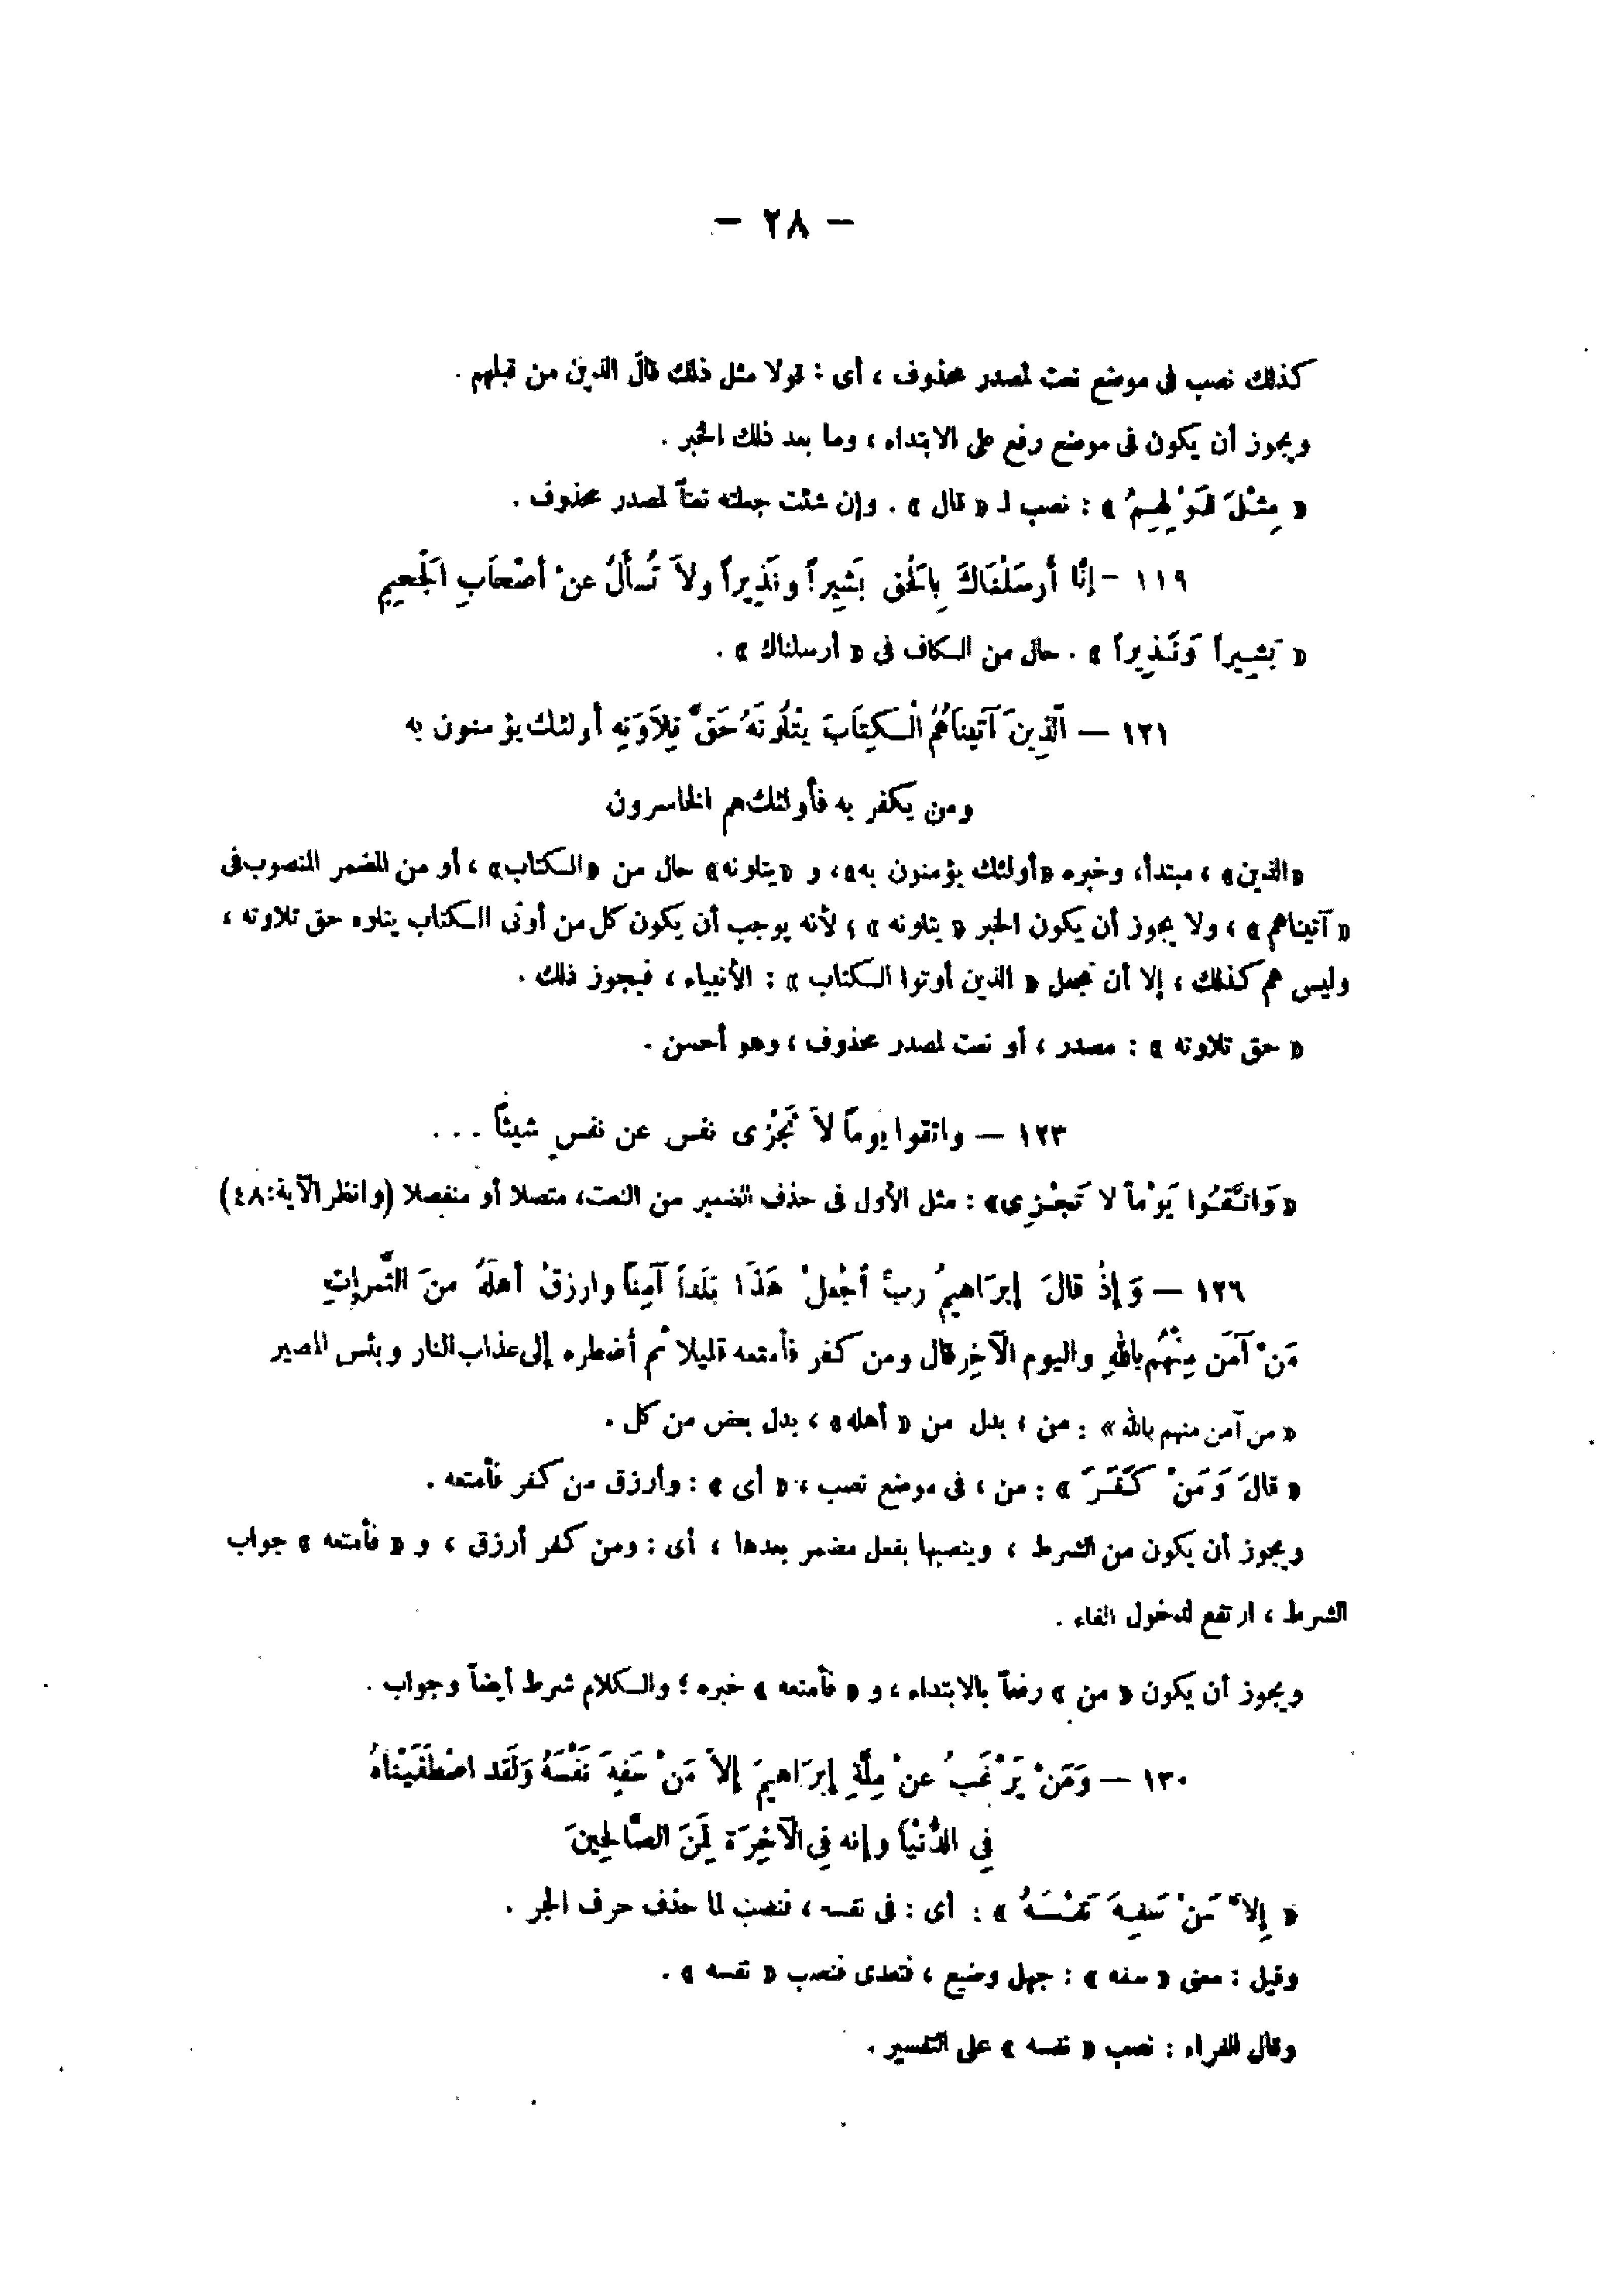 — ٢٨ —
كذلك نصب فى موضع نعت لمصدر محذوف ، أى : قولا مثل ذلك قال الذين من قبلهم .
ويجوز أن يكون فى موضع رفع على الابتداء ، وما بعد ذلك الخبر .
« مِثْلَ قَوْلِهِمْ » : نصب لـ « قال » . وإن شئت جعلته نعتاً لمصدر محذوف .
١١٩ – إنَّا أَرسَلْنَاكَ بِالَحْق بَشِيراً ونَذِيراً ولاَ تُسأَلُ عنْ أَصْحاَبِ الَجْحيِمِ
« بَشِيراً وَنَذِيراً » . حال من الكاف فى « أرسلناك » .
١٢١ — الَّذِينَ آتَينَاهُمُ الْكِتاَبَ يتْلُونَهُ حَقَّ تِلاَوَتِهِ أولئك يؤمنون به
ومن يكفر به فأولئك هم الخاسرون
«الذين» ، مبتدأ، وخبره «أولئك يؤمنون به»، و «يتلونه» حال من «الكتاب» ، أو من المضمر المنصوب فى
« آتيناهم » ، ولا يجوز أن يكون الخبر « يتلونه » ؛ لأنه يوجب أن يكون كل من أوتى الكتاب يتلوه حق تلاوته ،
وليس هم كذلك ، إلا أن تجعل « الذين أوتوا الكتاب » : الأنبياء ، فيجوز ذلك .
« حق تلاوته » : مصدر ، أو نعت لمصدر محذوف ، وهو أحسن .
١٢٣ — واتقوا يوماً لاَ تَجْزى نفس عن نفسٍ شيئاً . . .
« وَاتَّقُوا يَوْماً لا تَجْزِى» : مثل الأول فى حذف الضمير من النعت، متصلا أو منفصلا (وانظر الآية:٤٨)
١٢٦ — وَإِذْ قالَ إبرَاهيمُ ربِّ أجْعلْ هَذَا بَلَداً آمِناً وارزقْ أهلَهُ منَ الثَّمراتِ
مَنْ آمَن مِنْهُم باللهِ واليوم الآخِر قال ومن كفر فأمتعه قليلا ثم أضطره إلى عذاب النار وبئس المصير
« من آمن منهم بالله » : من ، بدل من « أهله » ، بدل بعض من كل .
« قالَ وَمَنْ كَفَرَ » : من ، فى موضع نصب ، « أى » : وأرزق من كفر فأمتعه .
ويجوز أن يكون من الشرط ، وينصبها بفعل مضمر بعدها ، أى : ومن كفر أرزق ، و « فأمتعه » جواب
الشرط ، ارتفع لدخول الفاء .
ويجوز أن يكون « من » رفعاً بالابتداء ، و « فأمتعه » خبره ؛ والكلام شرط أيضاً وجواب .
١٣٠ — وَمَنْ يَرْغَبُ عنْ مِلَّةِ إبرَاهيمَ إلاَّ مَنْ سَفِهَ نَفْسَهُ وَلَقد اصْطَفَيْناَهُ
فِى الدُّنْياَ وإنه فِى الآخِرَة لَمِنَ الصَّالِحِينَ
« إلاَّ مَنْ سَفِهَ نَفْسَهُ » : أى : فى نفسه ، فنصب لما حذف حرف الجر .
وقيل : معنى « سفه » : جهل وضيع ، فتعدى فنصب « نفسه » .
وقال الفراء : نصب « نفسه » على التفسير .